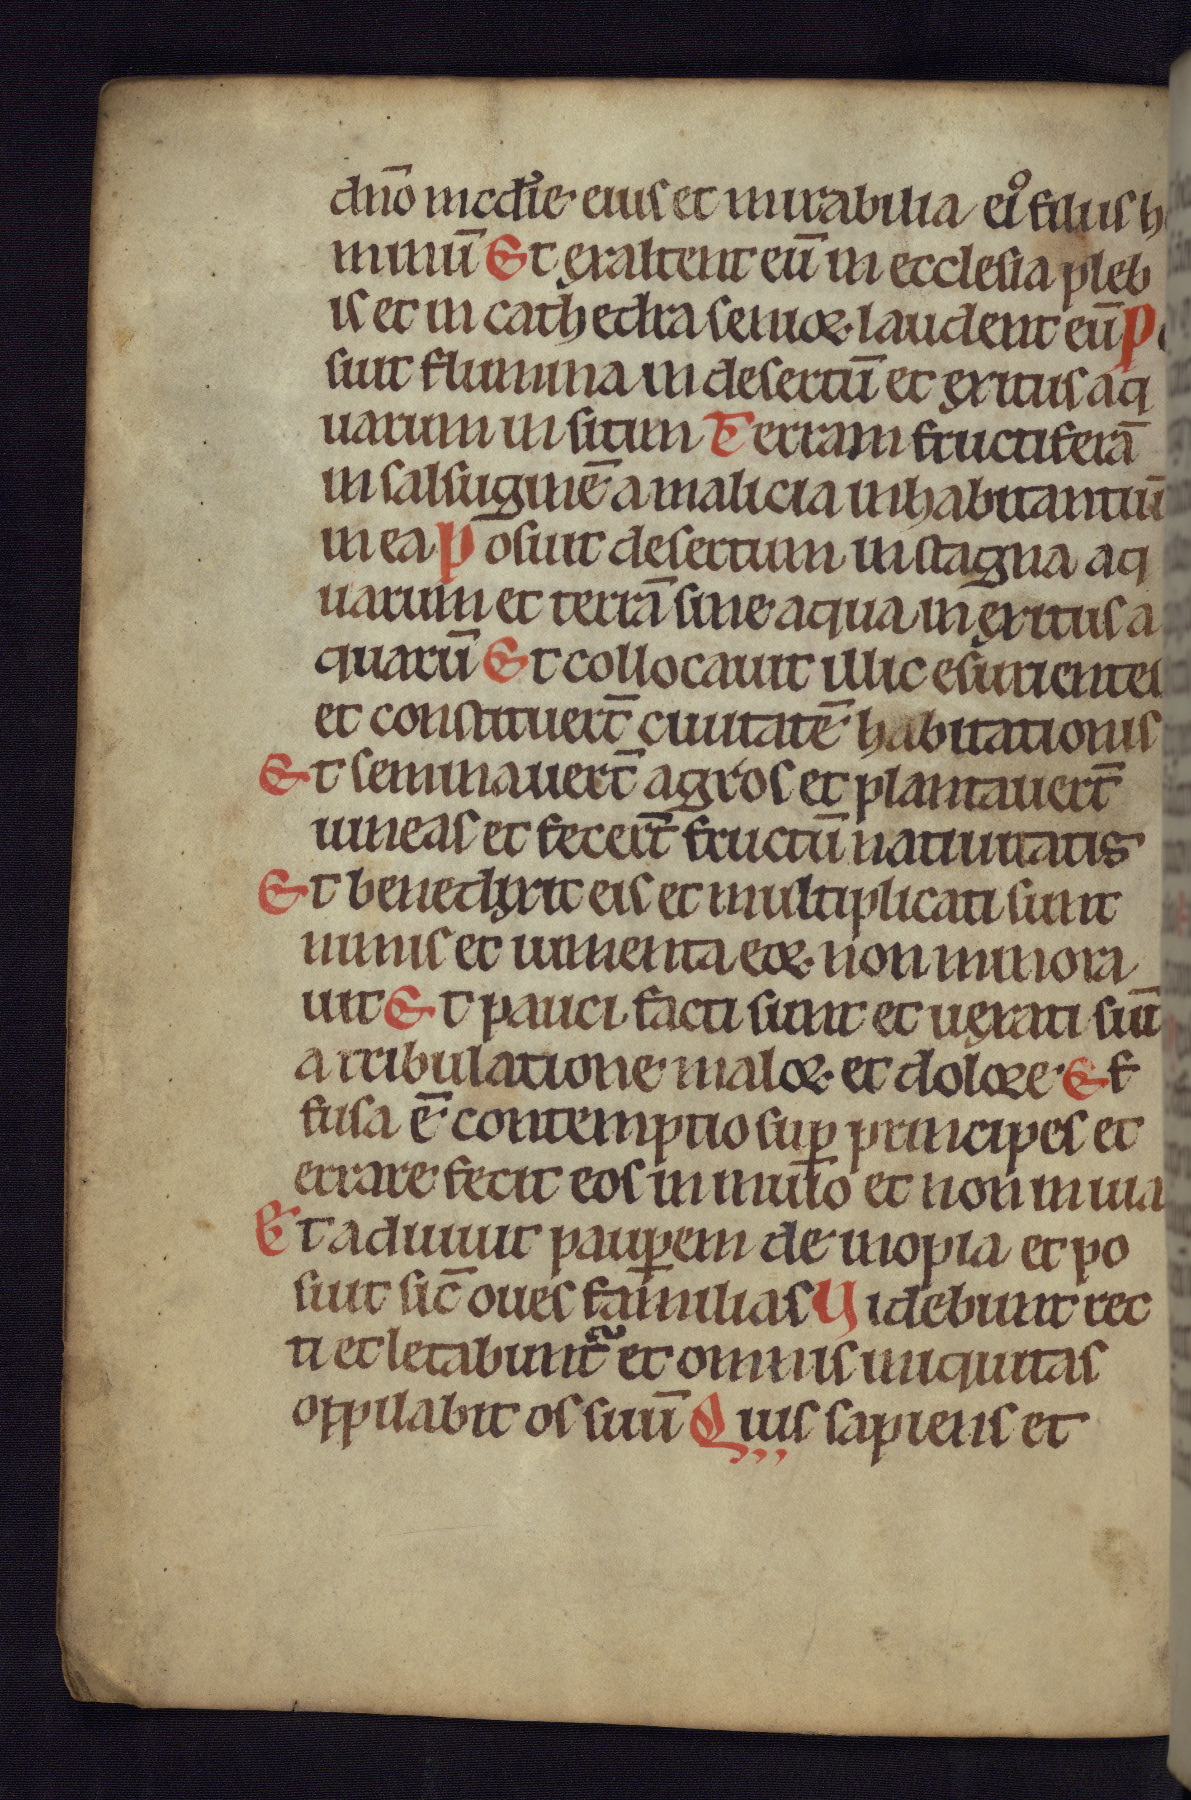 dn̄o mcd̄ie eius et mirabilia ei᷒ filiis h
minū Et exaltent eū in ecclesia pleb
is et in cathedra senioꝝ laudent eū P
suit flumina in desertū et exitus aq
uarum in sitim Terram fructiferā
in salsuginē a malicia inhabitantiū
in ea Posuit desertum in stagna aq
uarum et terrā sine aqua in exitus a
quarū Et collocauit illic esurientes
et constituert̄ ciuitatē habitationis
Et seminauert̄ agros et plantauert̄
uineas et fecert̄ fructū natiuitatis
Et benedixit eis et multiplicati sunt
nimis et iumenta eoꝝ non minora
uit Et pauci facti sunt et uexati sūt
a tribulatione maloꝝ et dolore Ef
fusa ē contemptio suꝑ principes et
errare fecit eos in inuīo et non in uia
Et adiuuit pauꝑem de inopia et po
suit sic̄ oues familias Videbunt rec
ti et letabunt᷑ et omnis iniquitas
oppilabit os suū Quis sapiens et